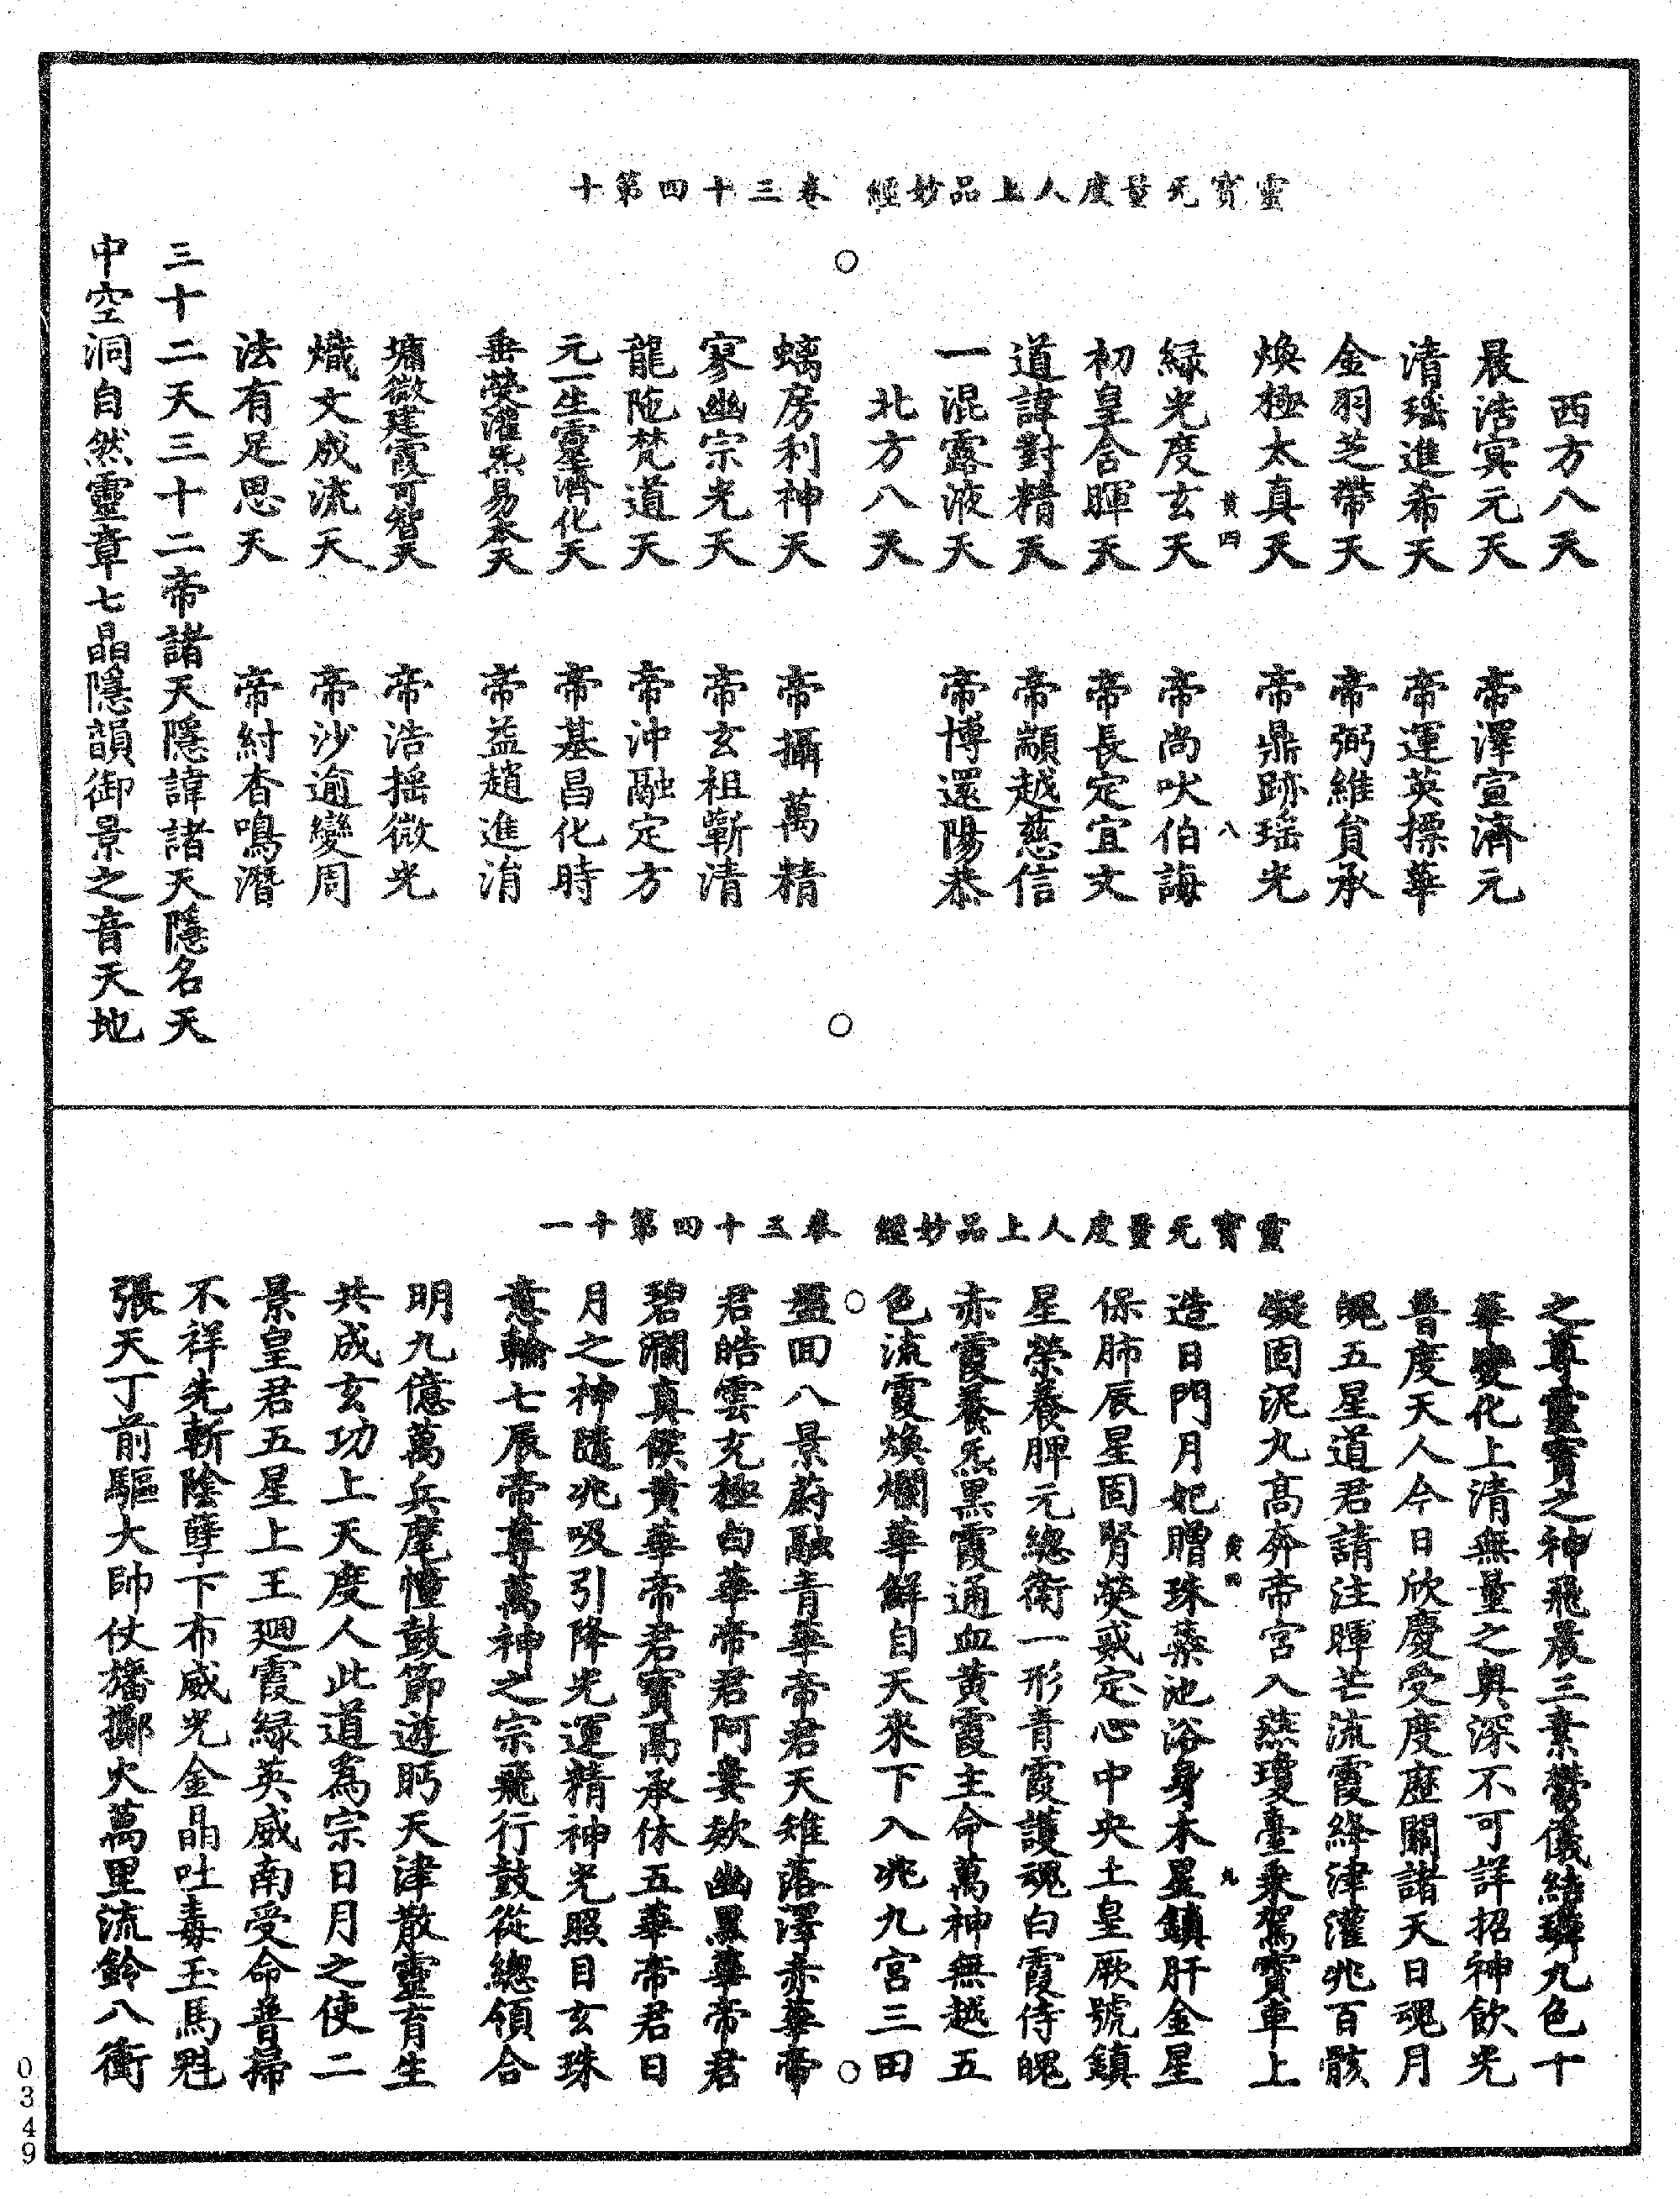 靈寶无量度人上品妙經 卷三十四第十
西方八天
晨浩寞元天 帝澤宣濟元
清瑤進希天 帝運英摽華
金羽芝帶天 帝弼維負承
煥極太真天 帝鼎跡瑤光
黃四 八
綠光度玄天 帝尚吠伯誨
初皇合暉天 帝長定宜文
道諱對精天 帝顓越慈信
一混露液天 帝博還陽恭
北方八天
螭房利神天 帝攝萬精
寥幽宗光天 帝玄祖斬清
龍陁梵道天 帝沖融定方
元一生靈濟化天 帝基昌化時
垂熒灌炁易本天 帝益趙進消
墉微建霞可智天 帝浩搖微光
熾文成流天 帝沙逾變周
法有足思天 帝紂杳鳴潛
三十二天三十二帝諸天隱諱諸天隱名天
中空洞自然靈章七晶隱韻御景之音天地
靈寶无量度人上品妙經 卷三十四第十一
之尊靈寶之神飛晨三素鬱儀結璘九色十
華變化上清無量之奧深不可詳招神飲光
普度天人今日欣慶受度歷關諸天日魂月
魄五星道君請注暉芒流霞絳津灌兆百骸
凝固泥丸高奔帝宮入蕊瓊臺乘駕寶車上
黃四 九
造日門月妃贈珠藥池浴身木星鎮肝金星
保肺辰星固腎熒惑定心中央土皇厥號鎮
星榮養脾元總衛一形青霞護魂白霞侍魄
赤霞養炁黑霞通血黃霞主命萬神無越五
色流霞煥爛華鮮自天來下入兆九宮三田
盤回八景蔚融青華帝君天雉落澤赤華帝
君皓雲充極白華帝君阿婁欻幽黑華帝君
碧瀾真候黃華帝君寶禼承休五華帝君日
月之神隨兆吸引降光運精神光照目玄珠
意輪七辰帝尊萬神之宗飛行鼓從總領合
明九億萬兵麾幢鼓節遊眄天津散靈育生
共成玄功上天度人此道為宗日月之使二
景皇君五星上王迴霞綠英威南受命普掃
不祥先斬陰孽下布威光金晶吐毒玉馬魁
張天丁前驅大帥仗旛擲火萬里流鈴八衝
0349